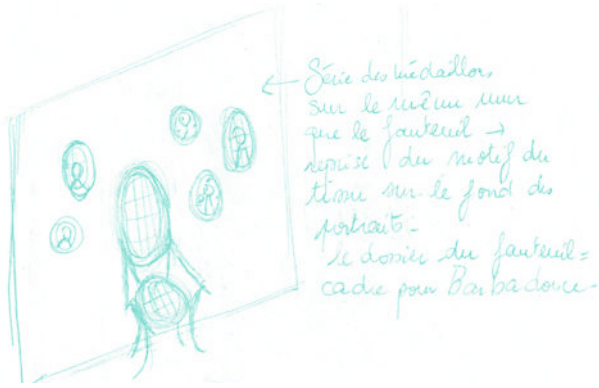 Série des médaillons
sur le même mur
que le fauteuil →
reprise du motif du
tissu sur le fond des
portraits.
le dossier du fauteuil =
cadre pour Barbadouce.